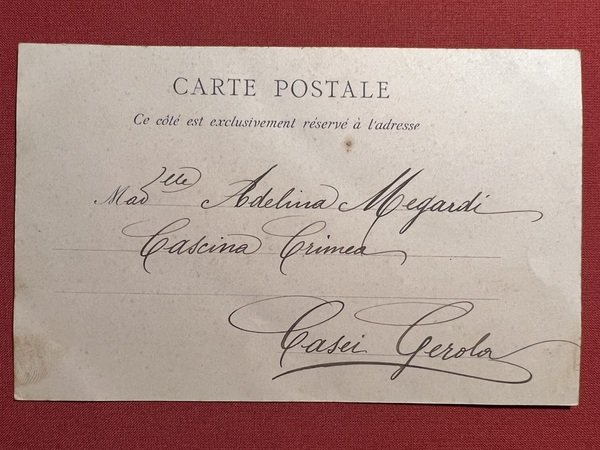 CARTE POSTALE
Ce côté est exclusivement réservé à l'adresse
Mad^elle Adelina Megardi
Cascina Crimea
Casei Gerola